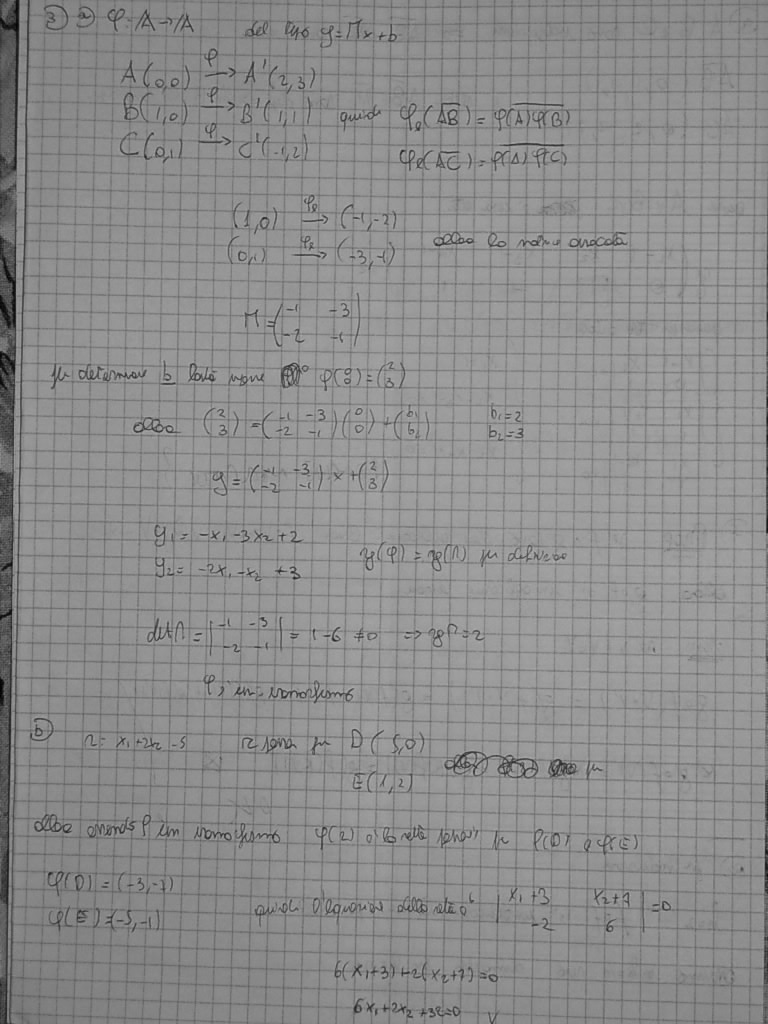 ③ a) φ: A → A del tipo y = Mx + b
A(0,0) →φ A'(2,3)
B(1,0) →φ B'(1,1) quindi φₑ(AB) = φ(A)φ(B)
C(0,1) →φ C'(-1,2) φₑ(AC) = φ(A)φ(C)
(1,0) →φₑ (-1,-2)
(0,1) →φₑ (-3,-1) allora la matrice associata
M = (-1 -3
-2 -1)
per determinare b φ(0 0) = (2 3)
allora (2 3) = (-1 -3 -2 -1)(0 0) + (b₁ b₂) b₁=2 b₂=3
y = (-1 -3 -2 -1) x + (2 3)
y₁ = -x₁ -3x₂ +2
y₂ = -2x₁ -x₂ +3 rg(φ) = rg(M) per definizione
det M = |-1 -3 -2 -1| = 1-6 ≠0 ⇒ rg M=2
φ è un isomorfismo
b) r= x₁+2x₂-5 r passa per D(5,0)
E(1,2) per
allora essendo φ un isomorfismo φ(r) è la retta passante per φ(D) e φ(E)
φ(D) = (-3,-7)
φ(E) = (-5,-1) quindi l'equazione della retta è |x₁+3 x₂+7 -2 6| =0
6(x₁+3)+2(x₂+7)=0
6x₁+2x₂+32=0